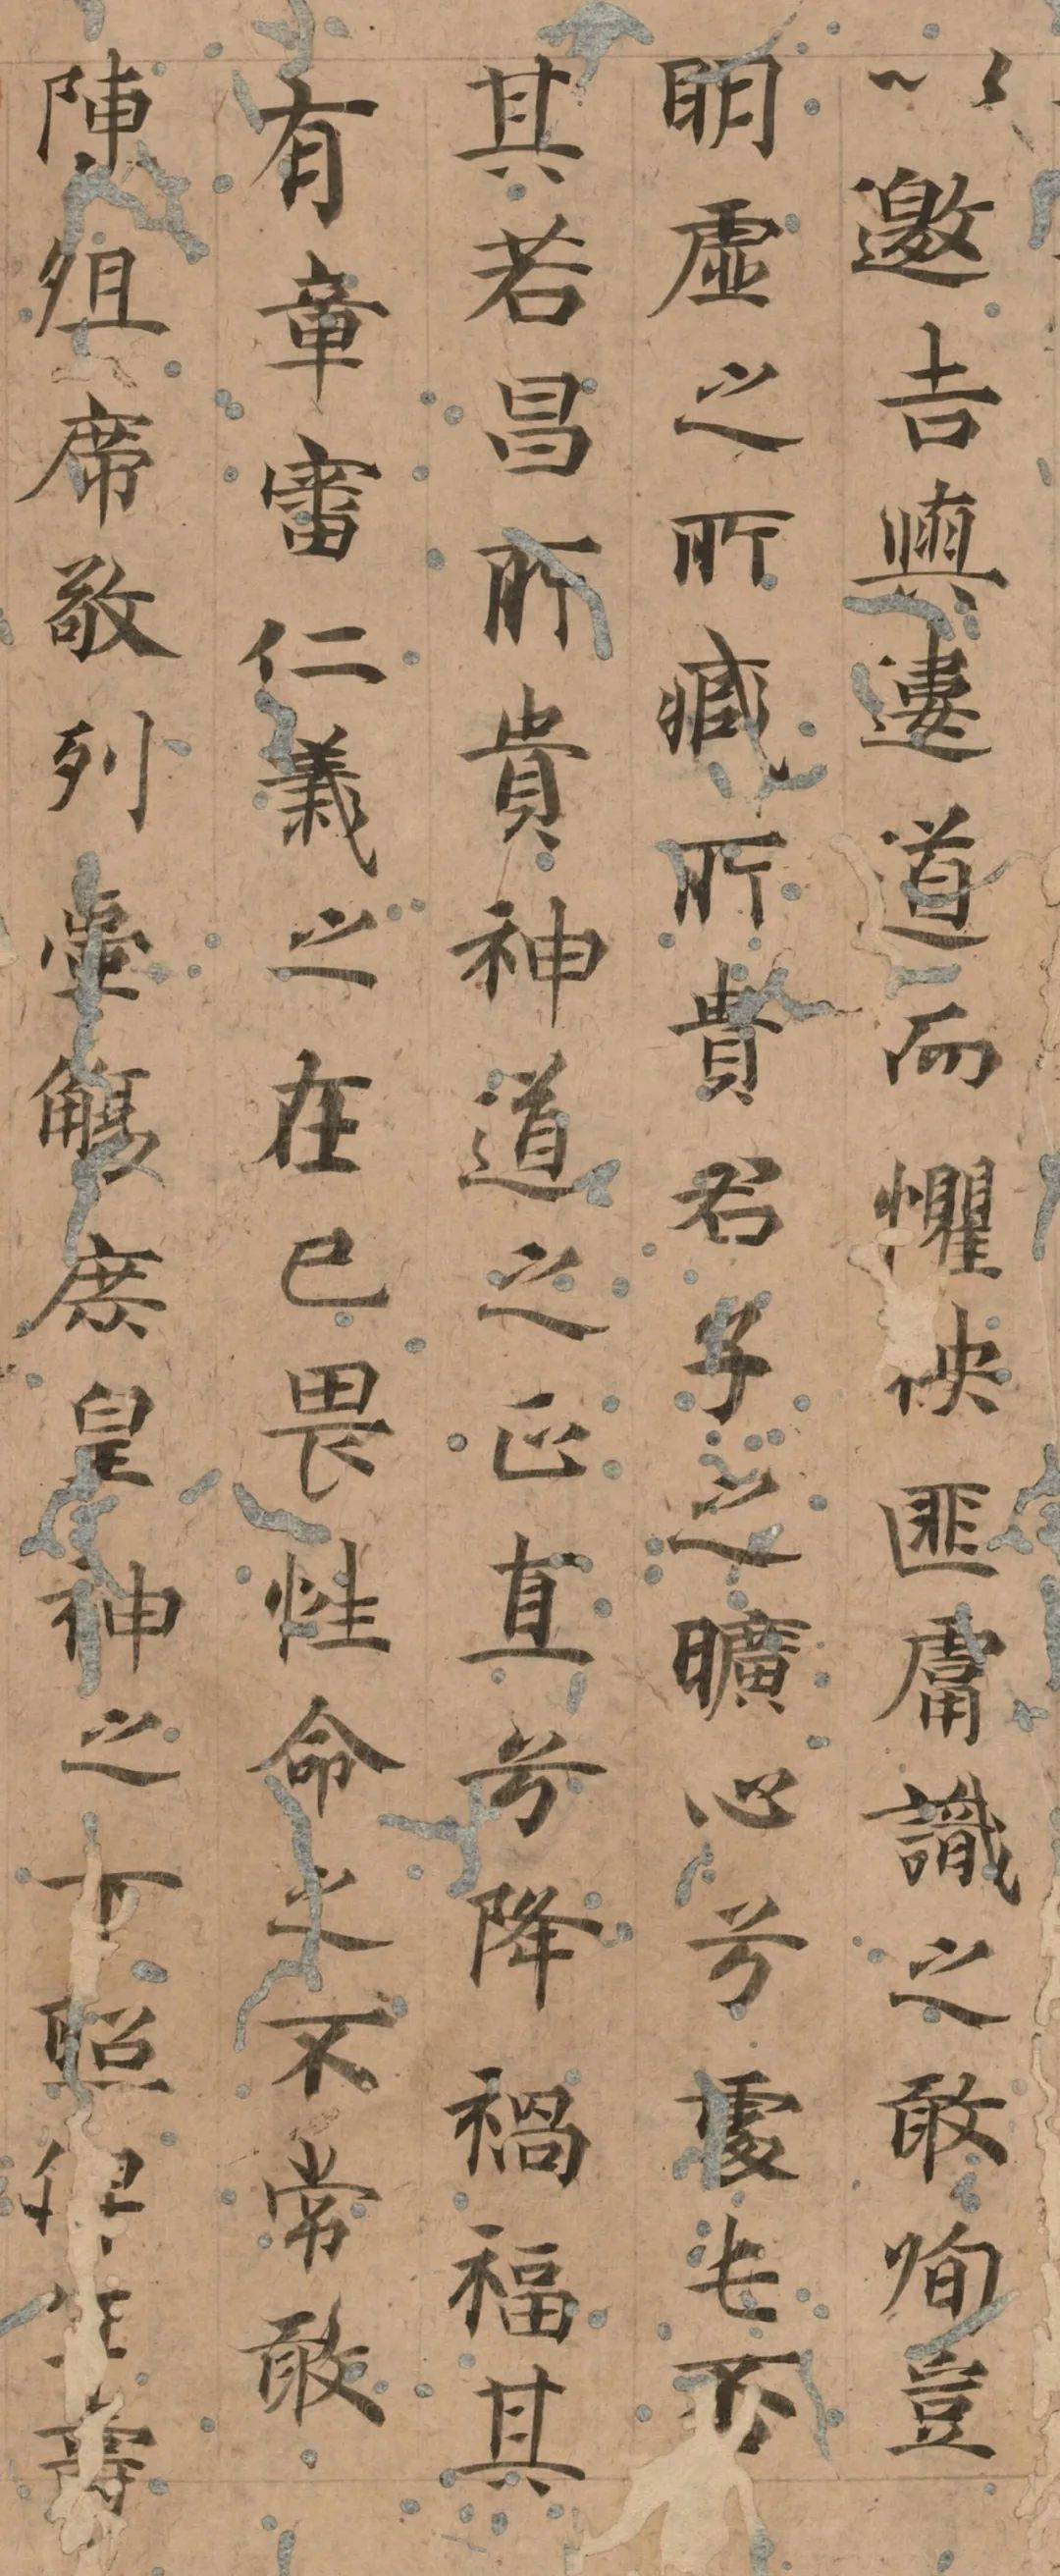 以邀吉與道而懼殃匪膚識之敢徇豈
明虛之所臧所貴君子之曠心兮處屯否
其若昌所貴神道之正直兮降禍福其
有章審仁義之在己畏性命之不常敢
陳俎席敬列壺觴庶皇神之下照俾生壽